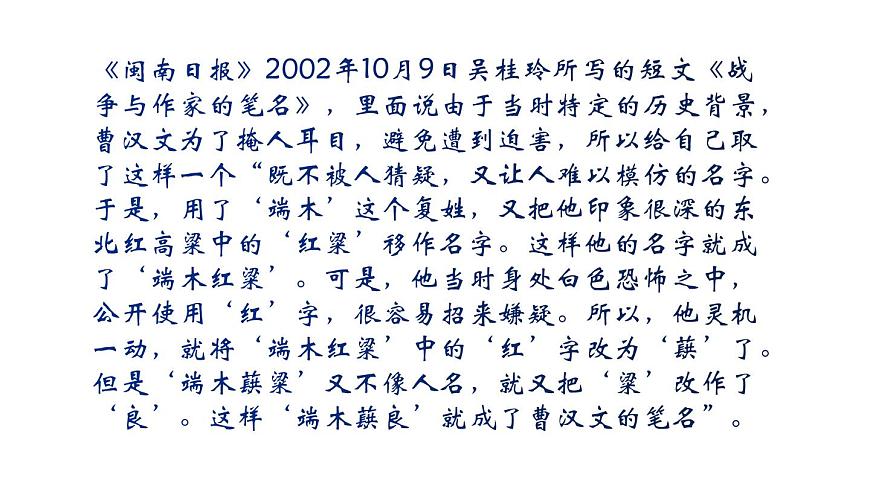 《闽南日报》2002年10月9日吴桂玲所写的短文《战
争与作家的笔名》，里面说由于当时特定的历史背景，
曹汉文为了掩人耳目，避免遭到迫害，所以给自己取
了这样一个“既不被人猜疑，又让人难以模仿的名字。
于是，用了‘端木’这个复姓，又把他印象很深的东
北红高粱中的‘红粱’移作名字。这样他的名字就成
了‘端木红粱’。可是，他当时身处白色恐怖之中，
公开使用‘红’字，很容易招来嫌疑。所以，他灵机
一动，就将‘端木红粱’中的‘红’字改为‘蕻’了。
但是‘端木蕻粱’又不像人名，就又把‘粱’改作了
‘良’。这样‘端木蕻良’就成了曹汉文的笔名”。